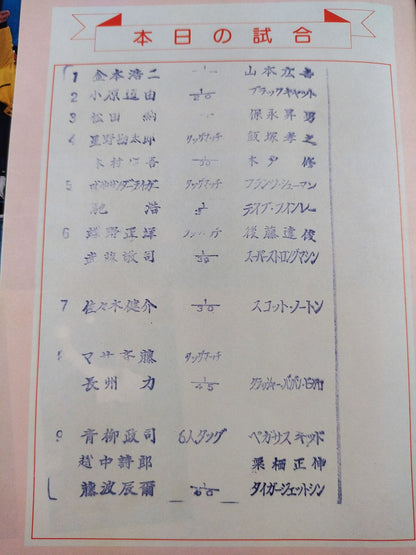 本日の試合
1 金本浩二 山本広吉
2 小原道由 1/20 ブラックキャット
3 松田納 保永昇男
4 星野勘太郎 タッグマッチ 飯塚孝之
木村健吾 1/30 木戸修
5 タッグマッチ フランツ・シューマン
浩 デイブ・フィンレー
6 蝶野正洋 タッグマッチ 後藤達俊
武藤敬司 1/30 スーパーストロングマシン
7 佐々木健介 1/30 スコット・ノートン
8 マサ斎藤 タッグマッチ
長州力 1/45 クラッシャー・バンバン・ビガロ
9 青柳政司 6人タッグ ペガサスキッド
越中詩郎 栗栖正伸
藤波辰爾 1/60 タイガージェットシン